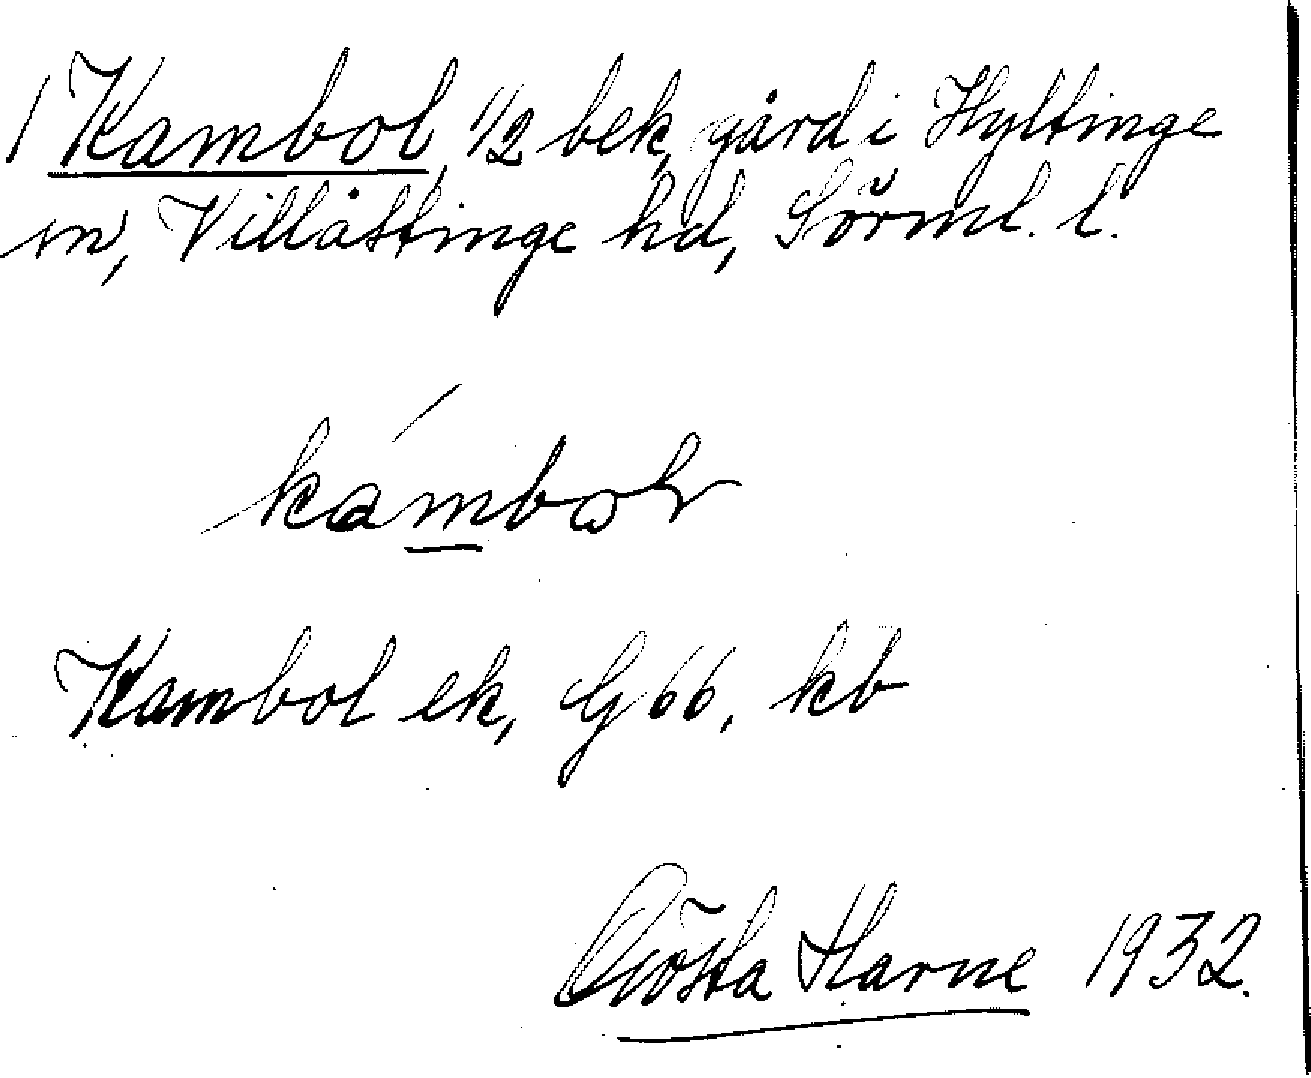 / Kambol, 1/2 bek, gård i Hyltinge
sn, Villåttinge hd, Sörml. l.
Kambol ek, G 66, kb
Gösta Harne 1932.